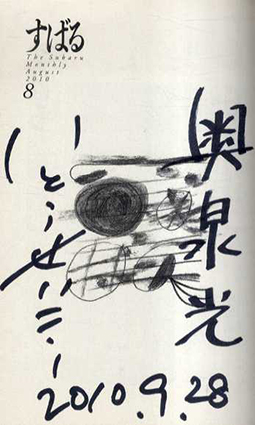 すばる
The Subaru
Monthly
August
2010
8
奥泉光
いとうせいこう
2010.9.28